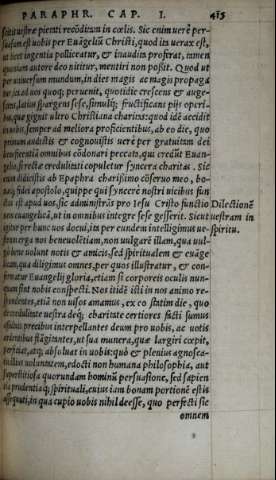 PARAPHR. CAP. I. 415
seitis uestræ pienti recõditum in cœlis. Sic enim uere per-
suasum est uobis per Euãgeliũ Christi, quod ita uerax est,
ut licet ingentia polliceatur, & inaudita proferat, tamen
quoniam autore deo nititur, mentiri non possit. Quod ut
per uniuersum mundum, in dies magis ac magis propaga
tur, ita ad uos quoq; peruenit, quotidie crescens & auge-
scens, latius spargens sese, simulq; fructificans pijs operi-
bus, quæ gignit ultro Christiana charitas: quod idẽ accidit
in uobis, semper ad meliora proficientibus, ab eo die, quo
primum audistis & cognouistis uere per gratuitam dei
beneficentiã omnibus cõdonari peccata, qui credũt Euan-
gelio, si recta credulitati copuletur syncera charitas. Sic
enim didicistis ab Epaphra charissimo cõseruo meo, ho-
mine fidei apostolo, quippe qui syncere nostri uicibus fun
ctus est apud uos, sic administrãs pro Iesu Christo functio
nem euangelicã, ut in omnibus integre sese gesserit. Sicut
igitur per hunc uos docui, ita per eundem intelligimus ue-
stram erga nos beneuolẽtiam, non uulgarẽ illam, qua uul-
go bene uolunt notis & amicis, sed spiritualem & euãge
licam, qua diligimus omnes, per quos illustratur, & con-
firmatur Euangelij gloria, etiam si corporeis oculis nun-
quam sint nobis conspecti. Nos itidẽ icti in nos animo re-
spondentes, etiã non uisos amamus, ex eo statim die, quo
de credulitate uestra deq; charitate certiores facti sumus
assiduis precibus interpellantes deum pro uobis, ac uotis
omnibus flagitantes, ut sua munera, quæ largiri cœpit,
perficiat, atq; absoluat in uobis: quo & plenius agnosca-
tis illius uoluntatem, edocti non humana philosophia, aut
superstitiosa quorundam hominũ persuasione, sed sapien
tia prudentiaq; spirituali, cuius iam bonam portionẽ estis
assequuti, in qua cupio uobis nihil deesse, quo perfecti sic
omnem
Dilectionẽ
uestram in
spiritu.